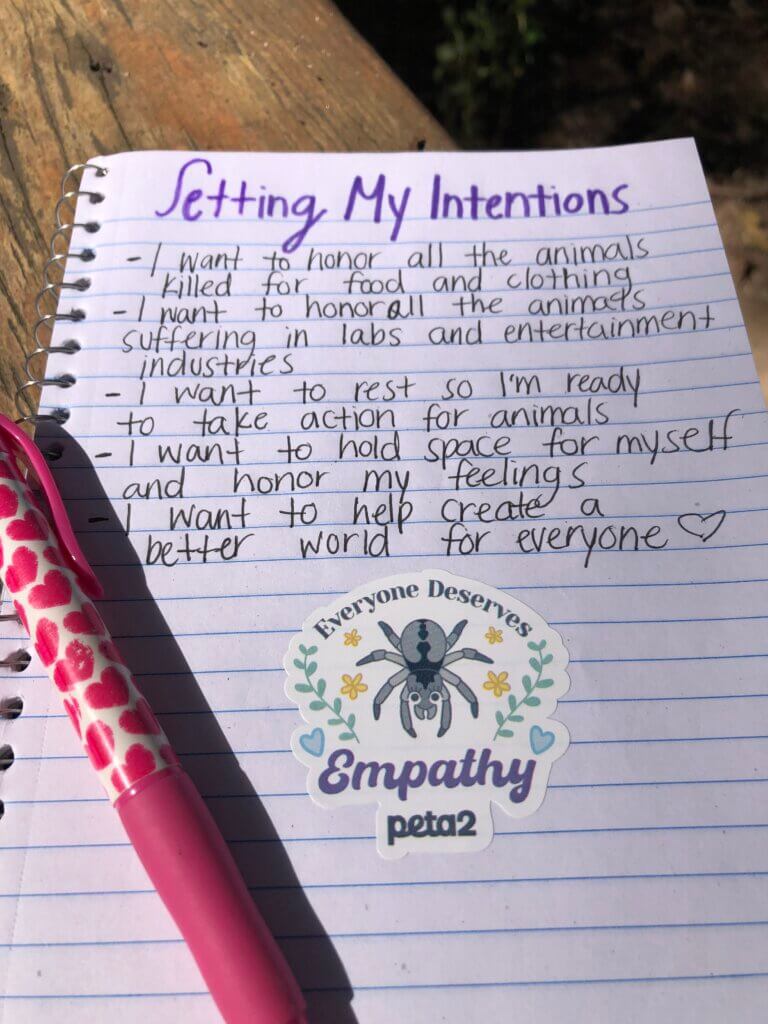 Setting My Intentions
- I want to honor all the animals
killed for food and clothing
- I want to honor all the animals
suffering in labs and entertainment
industries
- I want to rest so I'm ready
to take action for animals
- I want to hold space for myself
and honor my feelings
- I want to help create a
better world for everyone ♡
Everyone Deserves
Empathy
peta2